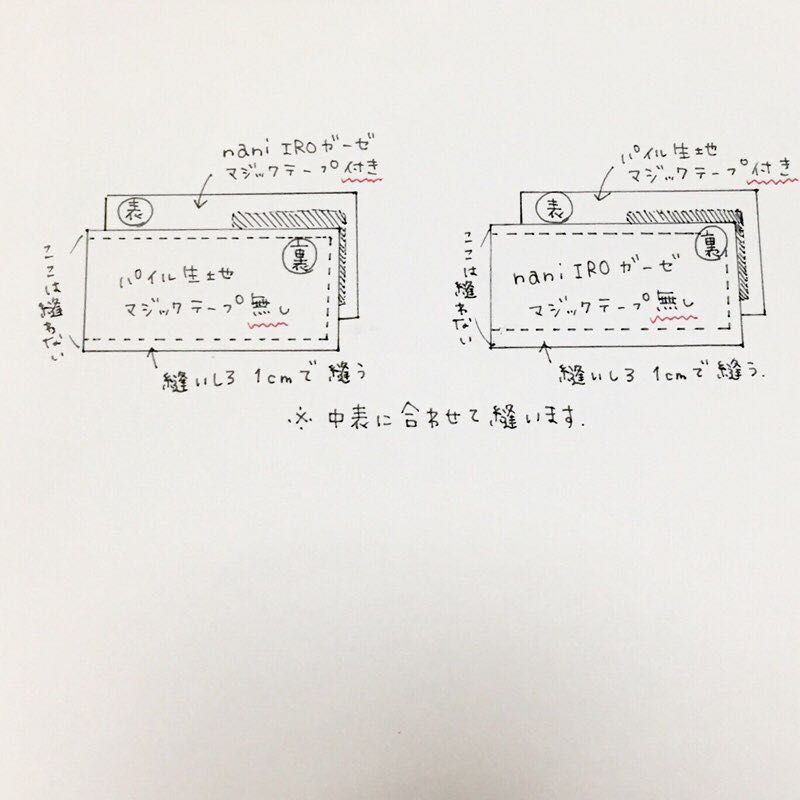 nani IROガーゼ
マジックテープ付き
表
裏
パイル生地
マジックテープ無し
ここは縫わない
縫いしろ 1cmで縫う
パイル生地
マジックテープ付き
表
裏
nani IROガーゼ
マジックテープ無し
ここは縫わない
縫いしろ 1cmで縫う.
※ 中表に合わせて縫います.